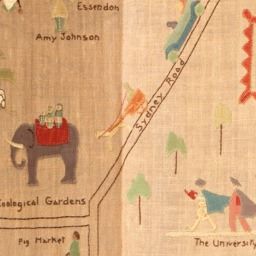 Essendon
Amy Johnson
Sydney Road
Zoological Gardens
Pig Market
The University